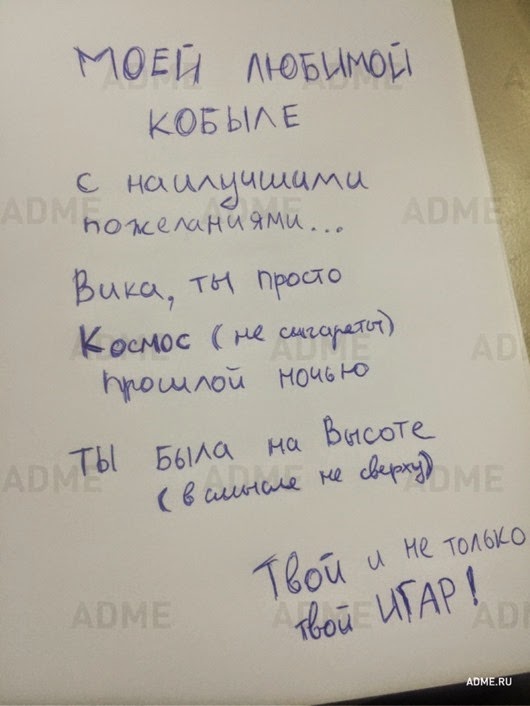 МОЕЙ ЛЮБИМОЙ
КОБЫЛЕ
с наилучшими
пожеланиями...
Вика, ты просто
Космос (не сигареты)
прошлой ночью
ТЫ БЫЛА на Высоте
(в смысле не сверху)
Твой и не только
твой ИГАР!
ADME
ADME
ADME
ADME
ADME
AD
ADME
ADME
ADME
ADME
ADME
AD
ADME.RU